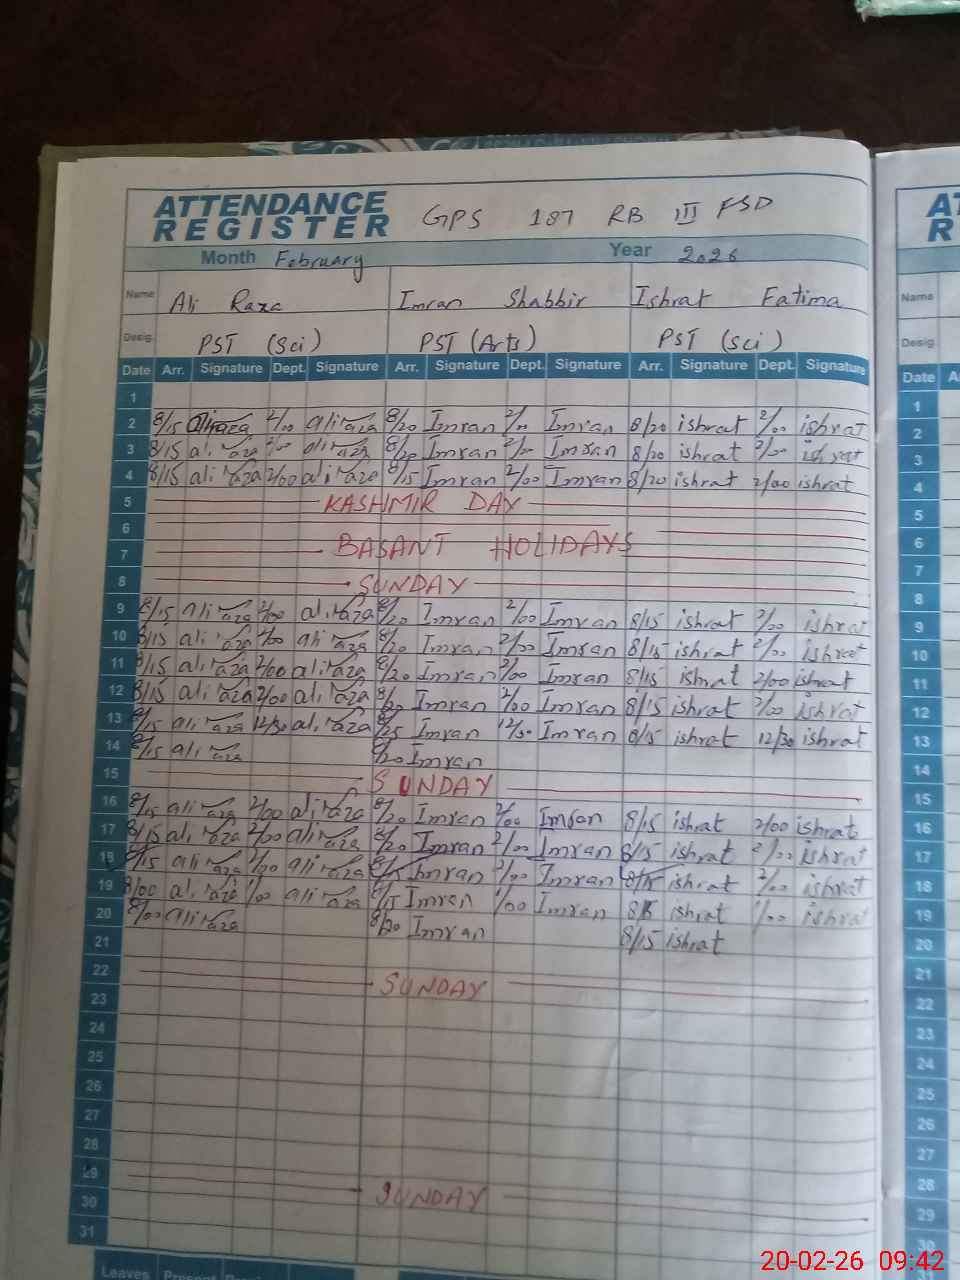 ATTENDANCE REGISTER GPS 187 RB III FSD
Month February Year 2026
Name Ali Raza Imran Shabbir Ishrat Fatima
Desig. PST (Sci) PST (Arts) PST (Sci)
Date Arr. Signature Dept. Signature Arr. Signature Dept. Signature Arr. Signature Dept. Signature
1
2 8/15 aliraza 2/00 aliraza 8/20 Imran 2/00 Imran 8/20 ishrat 2/00 ishrat
3 8/15 aliraza 2/00 aliraza 8/20 Imran 2/00 Imran 8/20 ishrat 2/00 ishrat
4 8/15 aliraza 2/00 aliraza 8/15 Imran 2/00 Imran 8/20 ishrat 2/00 ishrat
5 KASHMIR DAY
6
7 BASANT HOLIDAYS
8 SUNDAY
9 8/15 aliraza 2/00 aliraza 8/20 Imran 2/00 Imran 8/15 ishrat 2/00 ishrat
10 8/15 aliraza 2/00 aliraza 8/20 Imran 2/00 Imran 8/15 ishrat 2/00 ishrat
11 8/15 aliraza 2/00 aliraza 8/20 Imran 2/00 Imran 8/15 ishrat 2/00 ishrat
12 8/15 aliraza 2/00 aliraza 8/20 Imran 2/00 Imran 8/15 ishrat 2/00 ishrat
13 8/15 aliraza 12/30 aliraza 8/25 Imran 12/30 Imran 8/15 ishrat 12/30 ishrat
14 8/15 aliraza 8/20 Imran
15 SUNDAY
16 8/15 aliraza 2/00 aliraza 8/20 Imran 2/00 Imran 8/15 ishrat 2/00 ishrat
17 8/15 aliraza 2/00 aliraza 8/20 Imran 2/00 Imran 8/15 ishrat 2/00 ishrat
18 8/15 aliraza 2/00 aliraza 8/15 Imran 2/00 Imran 8/15 ishrat 2/00 ishrat
19 8/00 aliraza 1/00 aliraza 8/15 Imran 1/00 Imran 8/15 ishrat 1/00 ishrat
20 8/00 aliraza 8/20 Imran 8/15 ishrat
21
22 SUNDAY
23
24
25
26
27
28
29 SUNDAY
30
31
Leaves Present
Name
Desig.
Date
1
2
3
4
5
6
7
8
9
10
11
12
13
14
15
16
17
18
19
20
21
22
23
24
25
26
27
28
29
30
20-02-26 09:42